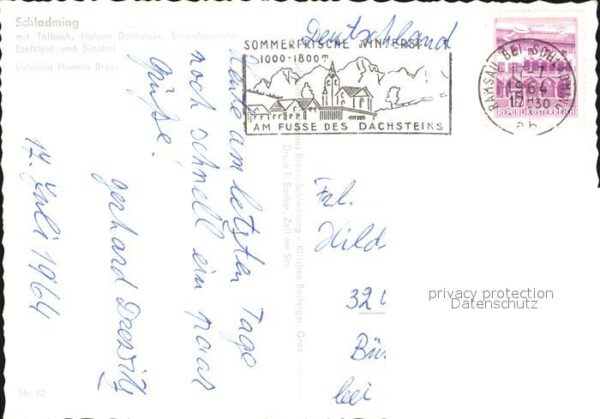 Schladming
mit Talbach, Hohem Dachstein,
Eselstein und Sinabel
Lichtbild Hannes
Deutschland
SOMMERFRISCHE WINTERST
1000-1800m
AM FUSSE DES DACHSTEINS
RAMSAU BEI SCHLADMING
17.7.
1964
17 30
REPUBLIK ÖSTERREICH
Heute am letzten Tage
noch schnell ein paar
Grüße!
Gerhard
17. Juli 1964
Schladming
Druck F. Sochor, Zell am See
Frl.
Hild
32
Bü
bei
privacy protection
Datenschutz
Nr. 62